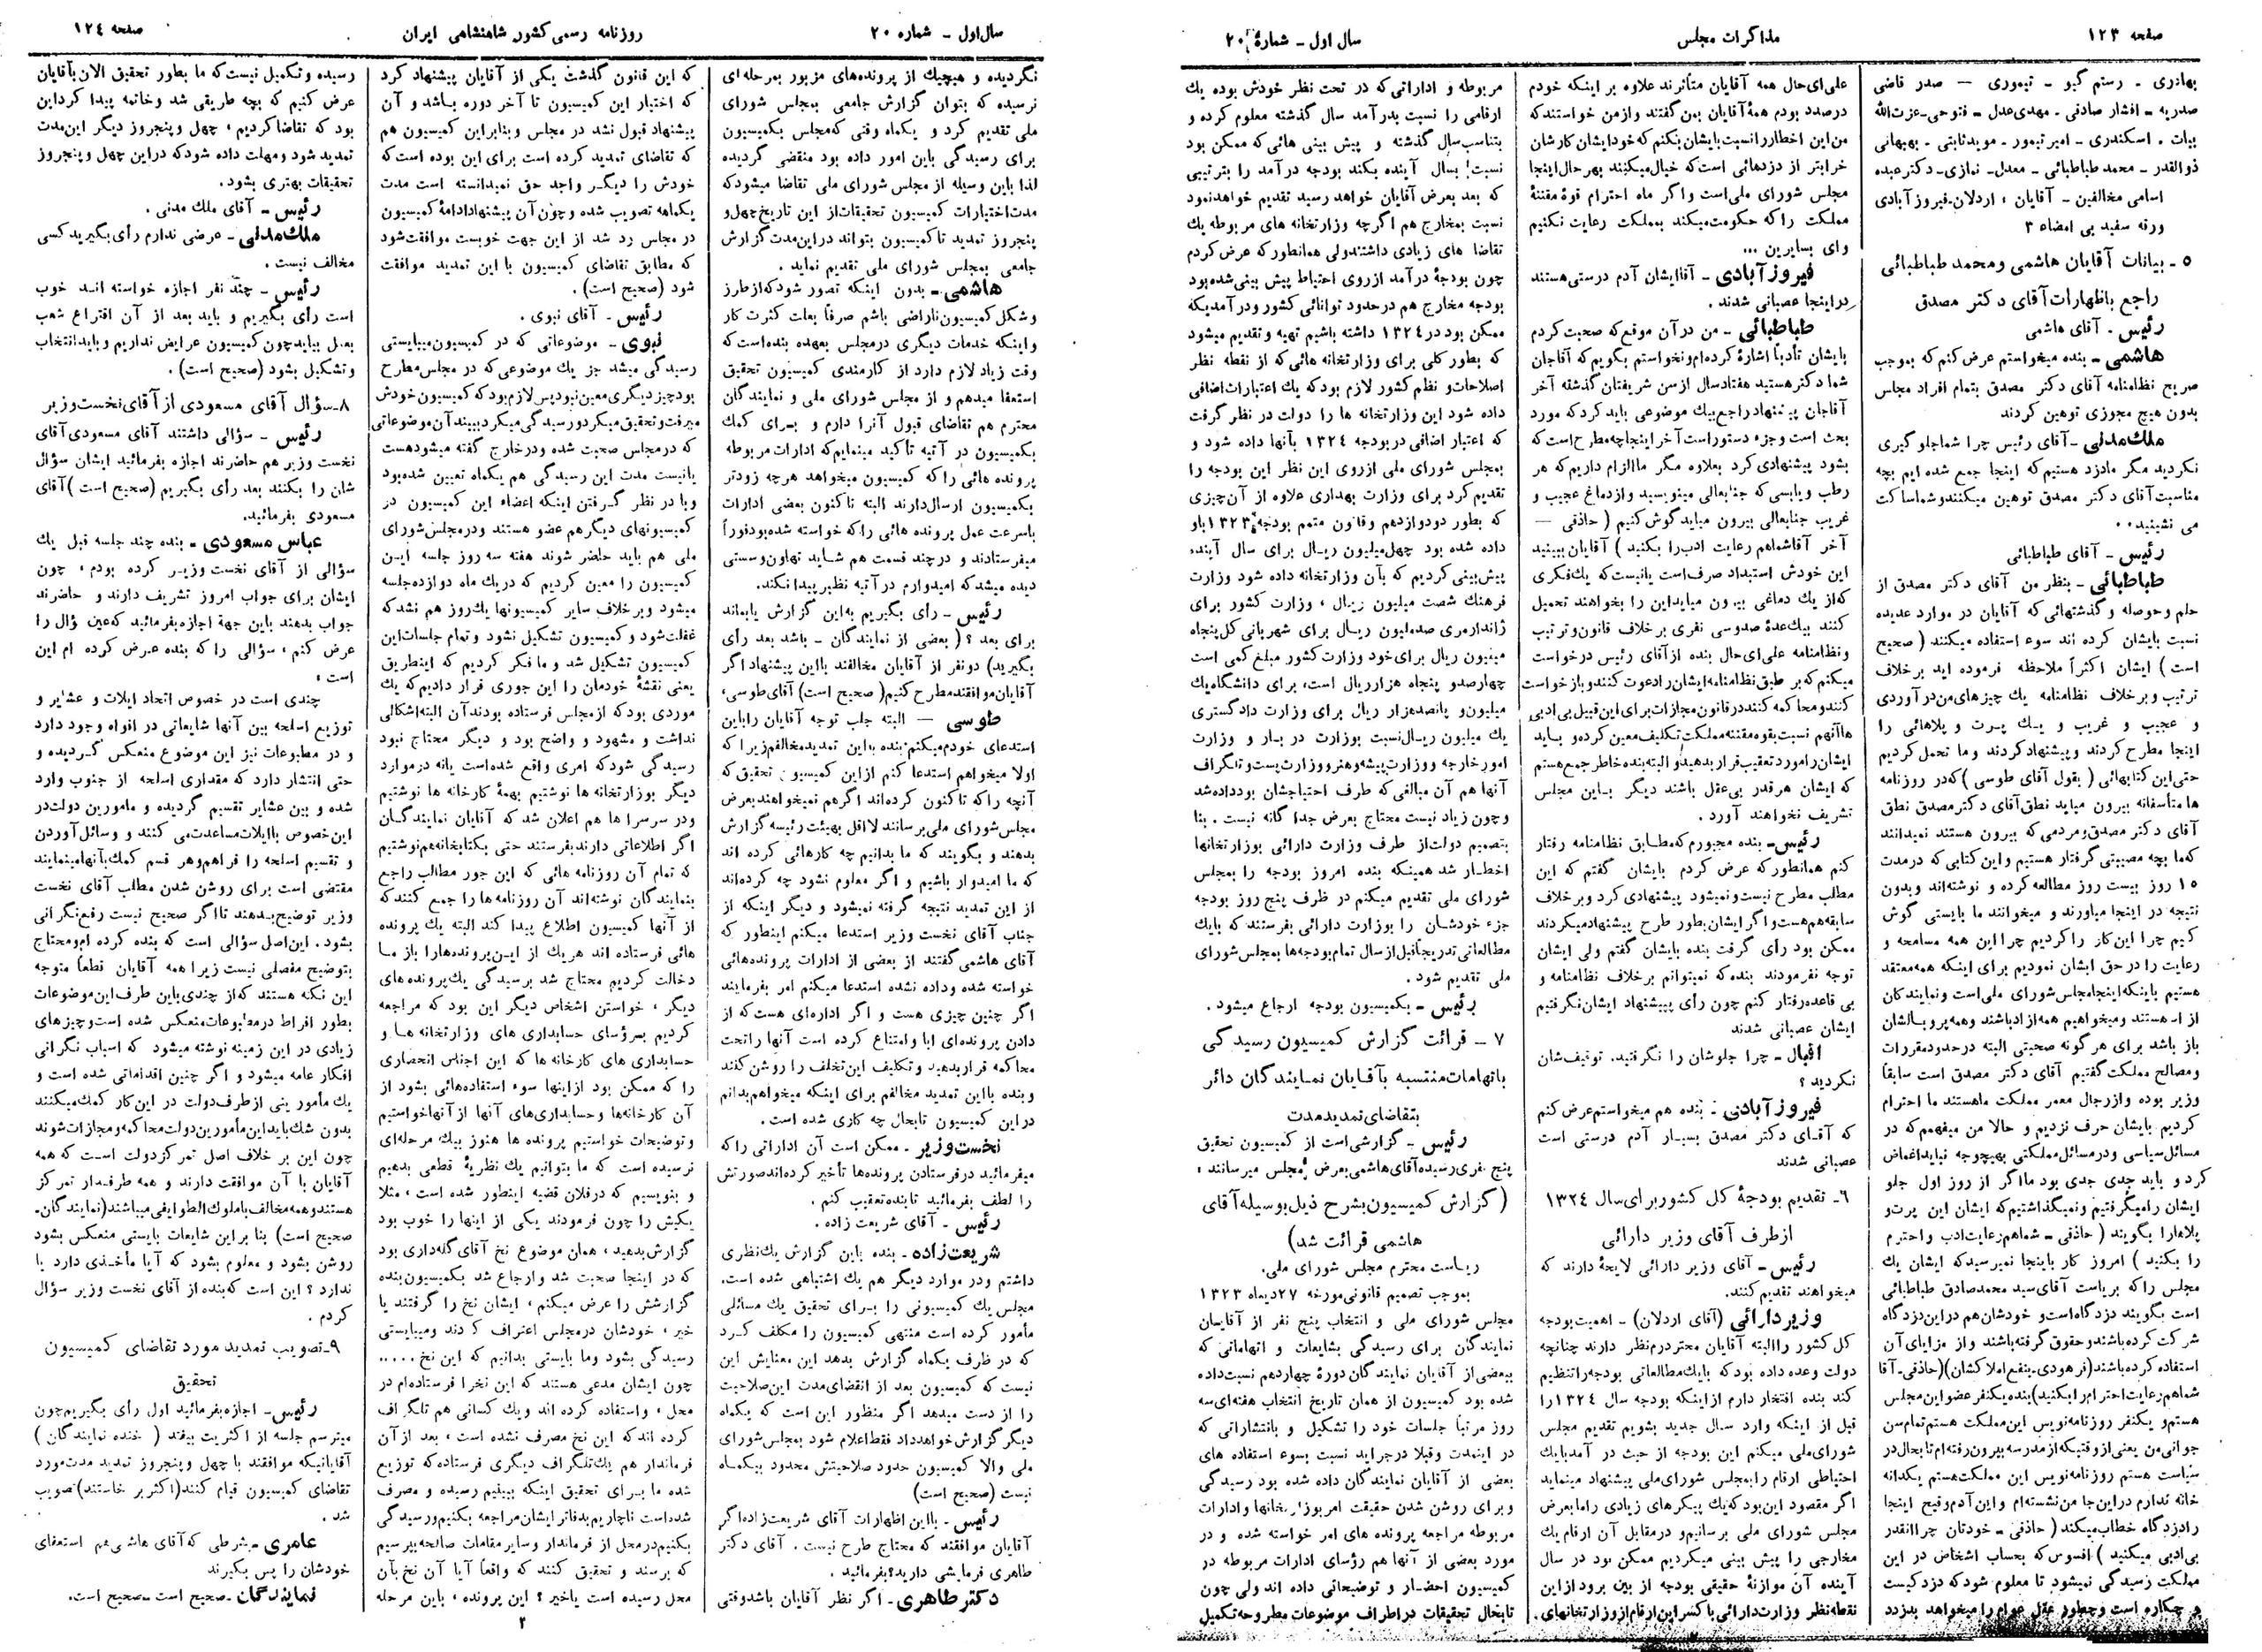 صفحه ۱۲۳
مذاکرات مجلس
سال اول ـ شمارهٔ ۲۰
بهادری ـ رستم گیو ـ تیموری — صدر قاضی
صدریه ـ افشار صادقی ـ مهدی عدل ـ فتوحی ـ عزت‌الله
بیات . اسکندری ـ امیر تیمور ـ مویدثابتی ـ بهبهانی
ذوالقدر ـ محمد طباطبائی ـ معدل ـ نمازی ـ دکتر عبده
اسامی مخالفین ـ آقایان : اردلان ـ فیروزآبادی
ورقه سفید بی امضاء ۳
۵ ـ بیانات آقایان هاشمی و محمد طباطبائی
راجع باظهارات آقای دکتر مصدق
رئیس ـ آقای هاشمی
هاشمی ـ بنده میخواستم عرض کنم که بموجب
صریح نظامنامه آقای دکتر مصدق بتمام افراد مجلس
بدون هیچ مجوزی توهین کردند
ملک‌مدنی ـ آقای رئیس چرا شما جلوگیری
نکردید مگر مادزد هستیم که اینجا جمع شده ایم بچه
مناسبت آقای دکتر مصدق توهین میکنند و شما ساکت
می نشینید . .
رئیس ـ آقای طباطبائی
طباطبائی ـ بنظر من آقای دکتر مصدق از
حلم و حوصله و گذشتهائی که آقایان در موارد عدیده
نسبت بایشان کرده اند سوء استفاده میکنند ( صحیح
است ) ایشان اکثراً ملاحظه فرموده اید برخلاف
ترتیب و برخلاف نظامنامه یک چیزهای من در آوردی
و عجیب و غریب و یک پرت و پلاهائی را
اینجا مطرح کردند و پیشنهاد کردند و ما تحمل کردیم
حتی این کتابهائی ( بقول آقای طوسی ) که در روزنامه
ها متأسفانه بیرون میاید نطق آقای دکتر مصدق نطق
آقای دکتر مصدق و مردمی که بیرون هستند نمیدانند
که ما بچه مصیبتی گرفتار هستیم و این کتابی که در مدت
۱۵ روز بیست روز مطالعه کرده و نوشته‌اند و بدون
نتیجه در اینجا میاورند و میخوانند ما بایستی گوش
کنیم چرا این کار را کردیم چرا این همه مسامحه و
رعایت را در حق ایشان نمودیم برای اینکه همه معتقد
هستیم باینکه اینجا مجلس شورای ملی است و نمایندگان
آزاد هستند و میخواهیم همه آزاد باشند و همه پر و بالشان
باز باشد برای هر گونه صحبتی البته در حدود مقررات
و مصالح مملکت گفتیم آقای دکتر مصدق است سابقاً
وزیر بوده و از رجال معمر مملکت ما هستند ما احترام
کردیم بایشان حرف نزدیم و حالا من میفهمم که در
مسائل سیاسی و در مسائل مملکتی بهیچوجه نباید اغماض
کرد و باید جدی جدی بود ما اگر از روز اول جلو
ایشان را میگرفتیم و نمیگذاشتیم که ایشان این پرت و
پلاهارا بگویند ( حاذقی ـ شما هم رعایت ادب و احترام
را بکنید ) امروز کار باینجا نمیرسید که ایشان یک
مجلس را که بریاست آقای سید محمدصادق طباطبائی
است بگویند دزدگاه است و خودشان هم در این دزدگاه
شرکت کرده باشند و حقوق گرفته باشند و از مزایای آن
استفاده کرده باشند (فرهودی ـ بنفع املاکشان) (حاذقی ـ آقا
شما هم رعایت احترام را بکنید) بنده یکنفر عضو این مجلس
هستم و یکنفر روزنامه نویس این مملکت هستم تمام سن
جوانی من یعنی از وقتیکه از مدرسه بیرون رفته‌ام تابحال در
سیاست هستم روزنامه نویس این مملکت هستم یکدانه
خانه ندارم در این جا من نشسته‌ام و این آدم وقیح اینجا
را دزدگاه خطاب میکند ( حاذقی ـ خودتان چرا انقدر
بی‌ادبی میکنید ) افسوس که بحساب اشخاص در این
مملکت رسیدگی نمیشود تا معلوم شود که دزد کیست
و چکاره است و چطور عقل عوام را میخواهد بدزدد
علی‌ای‌حال همه آقایان متأثرند علاوه بر اینکه خودم
درصدد بودم همهٔ آقایان بمن گفتند و از من خواستند که
من این اخطار را نسبت بایشان بکنم که خود ایشان کارشان
خرابتر از دزدهائی است که خیال میکنند بهر حال اینجا
مجلس شورای ملی است و اگر ماه احترام قوهٔ مقننهٔ
مملکت را که حکومت میکند بمملکت رعایت نکنیم
وای بسایرین ...
فیروزآبادی ـ آقا ایشان آدم درستی هستند
در اینجا عصبانی شدند .
طباطبائی ـ من در آن موقع که صحبت کردم
بایشان تأدباً اشاره کرده‌ام و نخواستم بگویم که آقاجان
شما دکتر هستید هفتاد سال از سن شریفتان گذشته آخر
آقاجان پیشنهاد راجع بیک موضوعی باید کرد که مورد
بحث است و جزء دستور است آخر اینجا چه مطرح است که
بشود پیشنهادی کرد بعلاوه مگر ما الزام داریم که هر
رطب و یابسی که جنابعالی مینویسید و از دماغ عجیب و
غریب جنابعالی بیرون میاید گوش کنیم ( حاذقی —
آخر آقا شما هم رعایت ادب را بکنید ) آقایان ببینید
این خودش استبداد صرف است یا نیست که یک فکری
که از یک دماغی بیرون میاید این را بخواهند تحمیل
کنند بیک عدهٔ صد و سی نفری برخلاف قانون و ترتیب
و نظامنامه علی‌ای‌حال بنده از آقای رئیس درخواست
میکنم که بر طبق نظامنامه ایشان را دعوت کنند و بازخواست
کنند و محاکمه کنند در قانون مجازات برای این قبیل بی ادبی
ها آنهم نسبت بقوه مقننه مملکت تکلیف معین کرده و باید
ایشان را مورد تعقیب قرار بدهید و البته بنده خاطر جمع هستم
که ایشان هر قدر بی‌عقل باشند دیگر باین مجلس
تشریف نخواهند آورد .
رئیس ـ بنده مجبورم که مطابق نظامنامه رفتار
کنم همانطور که عرض کردم بایشان گفتم که این
مطلب مطرح نیست و نمیشود پیشنهادی کرد و برخلاف
سابقه هم هست و اگر ایشان بطور طرح پیشنهاد میکردند
ممکن بود رأی گرفت بنده بایشان گفتم ولی ایشان
توجه نفرمودند بنده که نمیتوانم برخلاف نظامنامه و
بی قاعده رفتار کنم چون رأی پیشنهاد ایشان نگرفتیم
ایشان عصبانی شدند
اقبال ـ چرا جلوشان را نگرفتید، توقیف‌شان
نکردید ؟
فیروزآبادی ـ بنده هم میخواستم عرض کنم
که آقای دکتر مصدق بسیار آدم درستی است
عصبانی شدند
۶ ـ تقدیم بودجهٔ کل کشور برای سال ۱۳۲۴
از طرف آقای وزیر دارائی
رئیس ـ آقای وزیر دارائی لایحهٔ دارند که
میخواهند تقدیم کنند.
وزیر دارائی (آقای اردلان) ـ اهمیت بودجه
کل کشور را البته آقایان محترم در نظر دارند چنانچه
دولت وعده داده بود که با یک مطالعاتی بودجه را تنظیم
کند بنده افتخار دارم از اینکه بودجه سال ۱۳۲۴ را
قبل از اینکه وارد سال جدید بشویم تقدیم مجلس
شورای ملی میکنم این بودجه از حیث درآمد با یک
احتیاطی ارقام را بمجلس شورای ملی پیشنهاد مینماید
اگر مقصود این بود که یک پیکرهای زیادی را ما بعرض
مجلس شورای ملی برسانیم و در مقابل آن ارقام یک
مخارجی را پیش بینی میکردیم ممکن بود در سال
آینده آن موازنهٔ حقیقی بودجه از بین برود از این
نقطه نظر وزارت دارائی با کسر این ارقام از وزارتخانهای
مربوطه و اداراتی که در تحت نظر خودش بوده یک
ارقامی را نسبت بدرآمد سال گذشته معلوم کرده و
بتناسب سال گذشته و پیش بینی هائی که ممکن بود
نسبت بسال آینده بکند بودجه درآمد را بترتیبی
که بعد بعرض آقایان خواهد رسید تقدیم خواهد نمود
نسبت بمخارج هم اگرچه وزارتخانه های مربوطه یک
تقاضا های زیادی داشتند ولی همانطور که عرض کردم
چون بودجهٔ درآمد از روی احتیاط پیش بینی شده بود
بودجه مخارج هم در حدود توانائی کشور و درآمدیکه
ممکن بود در ۱۳۲۴ داشته باشیم تهیه و تقدیم میشود
که بطور کلی برای وزارتخانه هائی که از نقطه نظر
اصلاحات و نظم کشور لازم بود که یک اعتبارات اضافی
داده شود این وزارتخانه ها را دولت در نظر گرفت
که اعتبار اضافی در بودجه ۱۳۲۴ بآنها داده شود و
بمجلس شورای ملی از روی این نظر این بودجه را
تقدیم کرد برای وزارت بهداری علاوه از آن چیزی
که بطور دودوازدهم و قانون متمم بودجه ۱۳۲۳ باو
داده شده بود چهل میلیون ریال برای سال آینده
پیش‌بینی کردیم که بآن وزارتخانه داده شود وزارت
فرهنگ شصت میلیون ریال ، وزارت کشور برای
ژاندارمری صدملیون ریال برای شهربانی کل پنجاه
میلیون ریال برای خود وزارت کشور مبلغ کمی است
چهارصد و پنجاه هزار ریال است، برای دانشگاه یک
میلیون و پانصدهزار ریال برای وزارت دادگستری
یک میلیون ریال نسبت بوزارت دربار و وزارت
امور خارجه و وزارت پیشه و هنر و وزارت پست و تلگراف
آنها هم آن مبالغی که طرف احتیاجشان بود داده شد
و چون زیاد نیست محتاج بعرض جداگانه نیست . بنا
بتصمیم دولت از طرف وزارت دارائی بوزارتخانها
اخطار شد همینکه بنده امروز بودجه را بمجلس
شورای ملی تقدیم میکنم در ظرف پنج روز بودجه
جزء خودشان را بوزارت دارائی بفرستند که با یک
مطالعاتی تدریجاً قبل از سال تمام بودجه‌ها بمجلس شورای
ملی تقدیم شود .
رئیس ـ بکمیسیون بودجه ارجاع میشود .
۷ ـ قرائت گزارش کمیسیون رسیدگی
باتهامات منتسبه بآقایان نمایندگان دائر
بتقاضای تمدید مدت
رئیس ـ گزارشی است از کمیسیون تحقیق
پنج نفری رسیده آقای هاشمی بعرض مجلس میرسانند :
( گزارش کمیسیون بشرح ذیل بوسیله آقای
هاشمی قرائت شد)
ریاست محترم مجلس شورای ملی.
بموجب تصمیم قانونی مورخه ۲۷ دیماه ۱۳۲۳
مجلس شورای ملی و انتخاب پنج نفر از آقایان
نمایندگان برای رسیدگی بشایعات و اتهاماتی که
ببعضی از آقایان نمایندگان دورهٔ چهاردهم نسبت داده
شده بود کمیسیون از همان تاریخ انتخاب هفته‌ای سه
روز مرتباً جلسات خود را تشکیل و بانتشاراتی که
در اینمدت و قبلا در جراید نسبت بسوء استفاده های
بعضی از آقایان نمایندگان داده شده بود رسیدگی
و برای روشن شدن حقیقت امر بوزارتخانها و ادارات
مربوطه مراجعه پرونده های امر خواسته شده و در
مورد بعضی از آنها هم رؤسای ادارات مربوطه در
کمیسیون احضار و توضیحاتی داده اند ولی چون
تابحال تحقیقات در اطراف موضوعات مطروحه تکمیل
سال اول ـ شماره ۲۰
روزنامه رسمی کشور شاهنشاهی ایران
صفحه ۱۲٤
نگردیده و هیچیک از پرونده‌های مزبور بمرحله‌ای
نرسیده که بتوان گزارش جامعی بمجلس شورای
ملی تقدیم کرد و یکماه وقتی که مجلس بکمیسیون
برای رسیدگی باین امور داده بود منقضی گردیده
لذا باین وسیله از مجلس شورای ملی تقاضا میشود که
مدت اختیارات کمیسیون تحقیقات از این تاریخ چهل و
پنجروز تمدید تا کمیسیون بتواند در این مدت گزارش
جامعی بمجلس شورای ملی تقدیم نماید .
هاشمی ـ بدون اینکه تصور شود که از طرز
و شکل کمیسیون ناراضی باشم صرفاً بعلت کثرت کار
و اینکه خدمات دیگری در مجلس بعهده بنده است که
وقت زیاد لازم دارد از کارمندی کمیسیون تحقیق
استعفا میدهم و از مجلس شورای ملی و نمایندگان
محترم هم تقاضای قبول آنرا دارم و برای کمک
بکمیسیون در آتیه تأکید مینمایم که ادارات مربوطه
پرونده هائی را که کمیسیون میخواهد هرچه زودتر
بکمیسیون ارسال دارند البته تاکنون بعضی ادارات
باسرعت عمل پرونده هائی را که خواسته شده بود فوراً
میفرستادند و در چند قسمت هم شاید تهاون و سستی
دیده میشد که امیدوارم در آتیه نظیر پیدا نکند.
رئیس ـ رأی بگیریم به این گزارش یا بماند
برای بعد ؟ ( بعضی از نمایندگان ـ باشد بعد رأی
بگیرید) دو نفر از آقایان مخالفند با این پیشنهاد اگر
آقایان موافقند مطرح کنیم( صحیح است) آقای طوسی،
طوسی — البته جلب توجه آقایان را باین
استدعای خودم میکنم بنده باین تمدید مخالفم زیرا که
اولا میخواهم استدعا کنم از این کمیسیون تحقیق که
آنچه را که تاکنون کرده‌اند اگر هم نمیخواهند بعرض
مجلس شورای ملی برسانند لااقل بهیئت رئیسه گزارش
بدهند و بگویند که ما بدانیم چه کارهائی کرده اند
که ما امیدوار باشیم و اگر معلوم نشود چه کرده‌اند
از این تمدید نتیجه گرفته نمیشود و دیگر اینکه از
جناب آقای نخست وزیر استدعا میکنم اینطور که
آقای هاشمی گفتند از بعضی از ادارات پرونده‌هائی
خواسته شده و داده نشده استدعا میکنم امر بفرمایند
اگر چنین چیزی هست و اگر اداره‌ای هست که از
دادن پرونده‌ای ابا و امتناع کرده است آنها را تحت
محاکمه قرار بدهید و تکلیف این تخلف را روشن کنند
و بنده با این تمدید مخالفم برای اینکه میخواهم بدانم
در این کمیسیون تابحال چه کاری شده است.
نخست‌وزیر ـ ممکن است آن اداراتی را که
میفرمائید در فرستادن پرونده‌ها تأخیر کرده‌اند صورتش
را لطف بفرمائید تا بنده تعقیب کنم .
رئیس ـ آقای شریعت زاده .
شریعت‌زاده ـ بنده باین گزارش یک نظری
داشتم و در موارد دیگر هم یک اشتباهی شده است،
مجلس یک کمیسیونی را برای تحقیق یک مسائلی
مأمور کرده است منتهی کمیسیون را مکلف کرد
که در ظرف یکماه گزارش بدهد این معنایش این
نیست که کمیسیون بعد از انقضای مدت این صلاحیت
را از دست میدهد اگر منظور این است که یکماه
دیگر گزارش خواهد داد فقط اعلام شود بمجلس شورای
ملی والا کمیسیون حدود صلاحیتش محدود بیکماه
نیست (صحیح است)
رئیس ـ با این اظهارات آقای شریعت زاده اگر
آقایان موافقند که محتاج طرح نیست . آقای دکتر
طاهری فرمایشی دارید؟ بفرمائید .
دکتر طاهری ـ اگر نظر آقایان باشد وقتی
که این قانون گذشت یکی از آقایان پیشنهاد کرد
که اختیار این کمیسیون تا آخر دوره باشد و آن
پیشنهاد قبول نشد در مجلس و بنابراین کمیسیون هم
که تقاضای تمدید کرده است برای این بوده است که
خودش را دیگر واجد حق نمیدانسته است مدت
یکماهه تصویب شده و چون آن پیشنهاد ادامهٔ کمیسیون
در مجلس رد شد از این جهت خوبست موافقت شود
که مطابق تقاضای کمیسیون با این تمدید موافقت
شود (صحیح است) .
رئیس ـ آقای نبوی .
نبوی ـ موضوعاتی که در کمیسیون میبایستی
رسیدگی میشد جز یک موضوعی که در مجلس مطرح
بود چیز دیگری معین نبود پس لازم بود که کمیسیون خودش
میرفت و تحقیق میکرد و رسیدگی میکرد ببیند آن موضوعاتی
که در مجلس صحبت شده و در خارج گفته میشود هست
یا نیست مدت این رسیدگی هم یکماه تعیین شده بود
و با در نظر گرفتن اینکه اعضاء این کمیسیون در
کمیسیونهای دیگر هم عضو هستند و در مجلس شورای
ملی هم باید حاضر شوند هفته سه روز جلسه این
کمیسیون را معین کردیم که در یک ماه دوازده جلسه
میشود و برخلاف سایر کمیسیونها یک روز هم نشد که
غفلت شود و کمیسیون تشکیل نشود و تمام جلسات این
کمیسیون تشکیل شد و ما فکر کردیم که اینطریق
یعنی نقشهٔ خودمان را این جوری قرار دادیم که یک
موردی بود که از مجلس فرستاده بودند آن البته اشکالی
نداشت و مشهود و واضح بود و دیگر محتاج نبود
رسیدگی شود که امری واقع شده است یا نه در موارد
دیگر بوزارتخانه ها نوشتیم بهمهٔ کارخانه ها نوشتیم
و در سرسرا ها هم اعلان شد که آقایان نمایندگان
اگر اطلاعاتی دارند بفرستند حتی بکتابخانه هم نوشتیم
که تمام آن روزنامه هائی که این جور مطالب راجع
بنمایندگان نوشته‌اند آن روزنامه ها را جمع کنند که
از آنها کمیسیون اطلاع پیدا کند البته یک پرونده
هائی فرستاده اند هر یک از این پرونده‌ها را باز ما
دخالت کردیم محتاج شد برسیدگی یک پرونده های
دیگر ، خواستن اشخاص دیگر این بود که مراجعه
کردیم بسر‌ؤسای حسابداری های وزارتخانه ها و
حسابداری های کارخانه ها که این اجناس انحصاری
را که ممکن بود از اینها سوء استفاده‌هائی بشود از
آن کارخانه‌ها و حسابداری‌های آنها از آنها خواستیم
و توضیحات خواستیم پرونده ها هنوز بیک مرحله‌ای
نرسیده است که ما بتوانیم یک نظریهٔ قطعی بدهیم
و بنویسیم که در فلان قضیه اینطور شده است ، مثلا
یکیش را چون فرمودند یکی از اینها را خوب بود
گزارش بدهید ، همان موضوع نخ آقای گله‌داری بود
که در اینجا صحبت شد و ارجاع شد بکمیسیون بنده
گزارشش را عرض میکنم ، ایشان نخ را گرفتند یا
خیر ، خودشان در مجلس اعتراف کردند و میبایستی
رسیدگی بشود و ما بایستی بدانیم که این نخ .....
چون ایشان مدعی هستند که این نخرا فرستاده‌ام در
محل ، و استفاده کرده اند و یک کسانی هم تلگراف
کرده اند که این نخ مصرف نشده است ، بعد از آن
فرماندار هم یک تلگراف دیگری فرستاده که توزیع
شده ما برای تحقیق اینکه ببینیم رسیده و مصرف
شده است ناچاریم بدفاتر ایشان مراجعه بکنیم و رسیدگی
بکنیم در محل از فرماندار و سایر مقامات صالحه بپرسیم
که برسند و تحقیق کنند که واقعاً آیا آن نخ بآن
محل رسیده است یا خیر ؟ این پرونده ، باین مرحله
رسیده و تکمیل نیست که ما بطور تحقیق الان بآقایان
عرض کنیم که بچه طریقی شد و خاتمه پیدا کرد این
بود که تقاضا کردیم ، چهل و پنجروز دیگر این مدت
تمدید شود و مهلت داده شود که در این چهل و پنجروز
تحقیقات بهتری بشود.
رئیس ـ آقای ملک مدنی .
ملک‌مدنی ـ عرضی ندارم رأی بگیرید کسی
مخالف نیست .
رئیس ـ چند نفر اجازه خواسته اند خوب
است رأی بگیریم و باید بعد از آن اقتراع شعب
بعمل بیاید چون کمیسیون عرایض نداریم و باید انتخاب
و تشکیل بشود (صحیح است) .
۸ ـ سؤال آقای مسعودی از آقای نخست وزیر
رئیس ـ سؤالی داشتند آقای مسعودی آقای
نخست وزیر هم حاضرند اجازه بفرمائید ایشان سؤال
شان را بکنند بعد رأی بگیریم (صحیح است ) آقای
مسعودی بفرمائید.
عباس مسعودی ـ بنده چند جلسه قبل یک
سؤالی از آقای نخست وزیر کرده بودم ، چون
ایشان برای جواب امروز تشریف دارند و حاضرند
جواب بدهند باین جهة اجازه بفرمائید که عین سؤال را
عرض کنم ، سؤالی را که بنده عرض کرده ام این
است :
چندی است در خصوص اتحاد ایلات و عشایر و
توزیع اسلحه بین آنها شایعاتی در افواه وجود دارد
و در مطبوعات نیز این موضوع منعکس گردیده و
حتی انتشار دارد که مقداری اسلحه از جنوب وارد
شده و بین عشایر تقسیم گردیده و مامورین دولت در
این خصوص باایلات مساعدت می کنند و وسائل آوردن
و تقسیم اسلحه را فراهم و هر قسم کمک بآنها مینمایند
مقتضی است برای روشن شدن مطلب آقای نخست
وزیر توضیح بدهند تا اگر صحیح نیست رفع نگرانی
بشود . این اصل سؤالی است که بنده کرده ام و محتاج
بتوضیح مفصلی نیست زیرا همه آقایان قطعاً متوجه
این نکته هستند که از چندی باین طرف این موضوعات
بطور افراط در مطبوعات منعکس شده است و چیزهای
زیادی در این زمینه نوشته میشود که اسباب نگرانی
افکار عامه میشود و اگر چنین اقداماتی شده است و
یک مأمورینی از طرف دولت در این کار کمک میکنند
بدون شک باید این مأمورین دولت محاکمه و مجازات شوند
چون این بر خلاف اصل تمرکز دولت است که همه
آقایان با آن موافقت دارند و همه طرفدار تمرکز
هستند و همه مخالف با ملوک الطوایفی میباشند (نمایندگان ـ
صحیح است) بنا براین شایعات بایستی منعکس بشود
روشن بشود و معلوم بشود که آیا مأخذی دارد یا
ندارد ؟ این است که بنده از آقای نخست وزیر سؤال
کردم .
۹ ـ تصویب تمدید مورد تقاضای کمیسیون
تحقیق
رئیس ـ اجازه بفرمائید اول رأی بگیریم چون
میترسم جلسه از اکثریت بیفتد ( خنده نمایندگان )
آقایانیکه موافقند با چهل و پنجروز تمدید مدت مورد
تقاضای کمیسیون قیام کنند (اکثر برخاستند) تصویب
شد .
عامری ـ بشرطی که آقای هاشمی هم استعفای
خودشان را پس بگیرند
نمایندگان ـ صحیح است ـ صحیح است.
۲